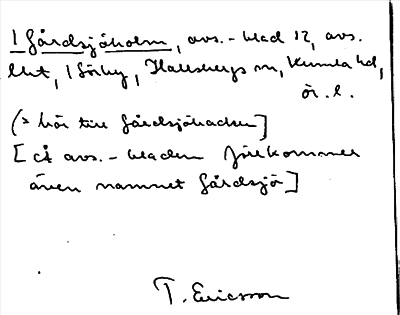 1 Gårdsjöholm, avs.-blad 12, avs.
lht, 1 Sörby, Hallsbergs sn, Kumla hd,
ör. l.
(> här till Gårdsjöbacken]
[på avs.-bladen förekommer
även namnet Gårdsjö]
T. Ericsson